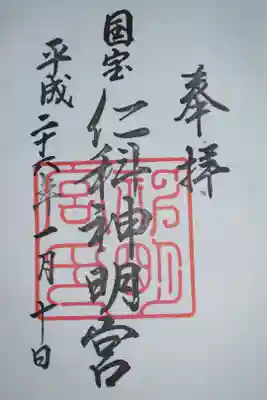 奉拝
国宝
仁科神明宮
平成二十六年一月十日